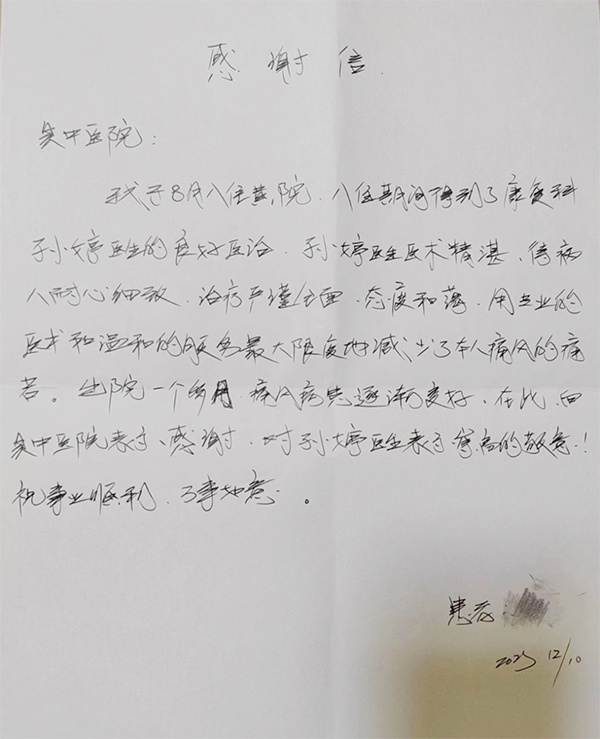 感谢信
吴中医院：
我于8月入住贵院，入住期间得到了康复科
孙婷医生的良好医治，孙婷医生医术精湛，待病
人耐心细致，治疗严谨全面，态度和蔼，用专业的
医术和温和的服务最大限度地减少了本人痛风的痛
苦。出院一个多月，痛风病患逐渐良好，在此，向
吴中医院表示感谢，对孙婷医生表示崇高的敬意！
祝事业顺利，万事如意。
患者：
2023 12/10